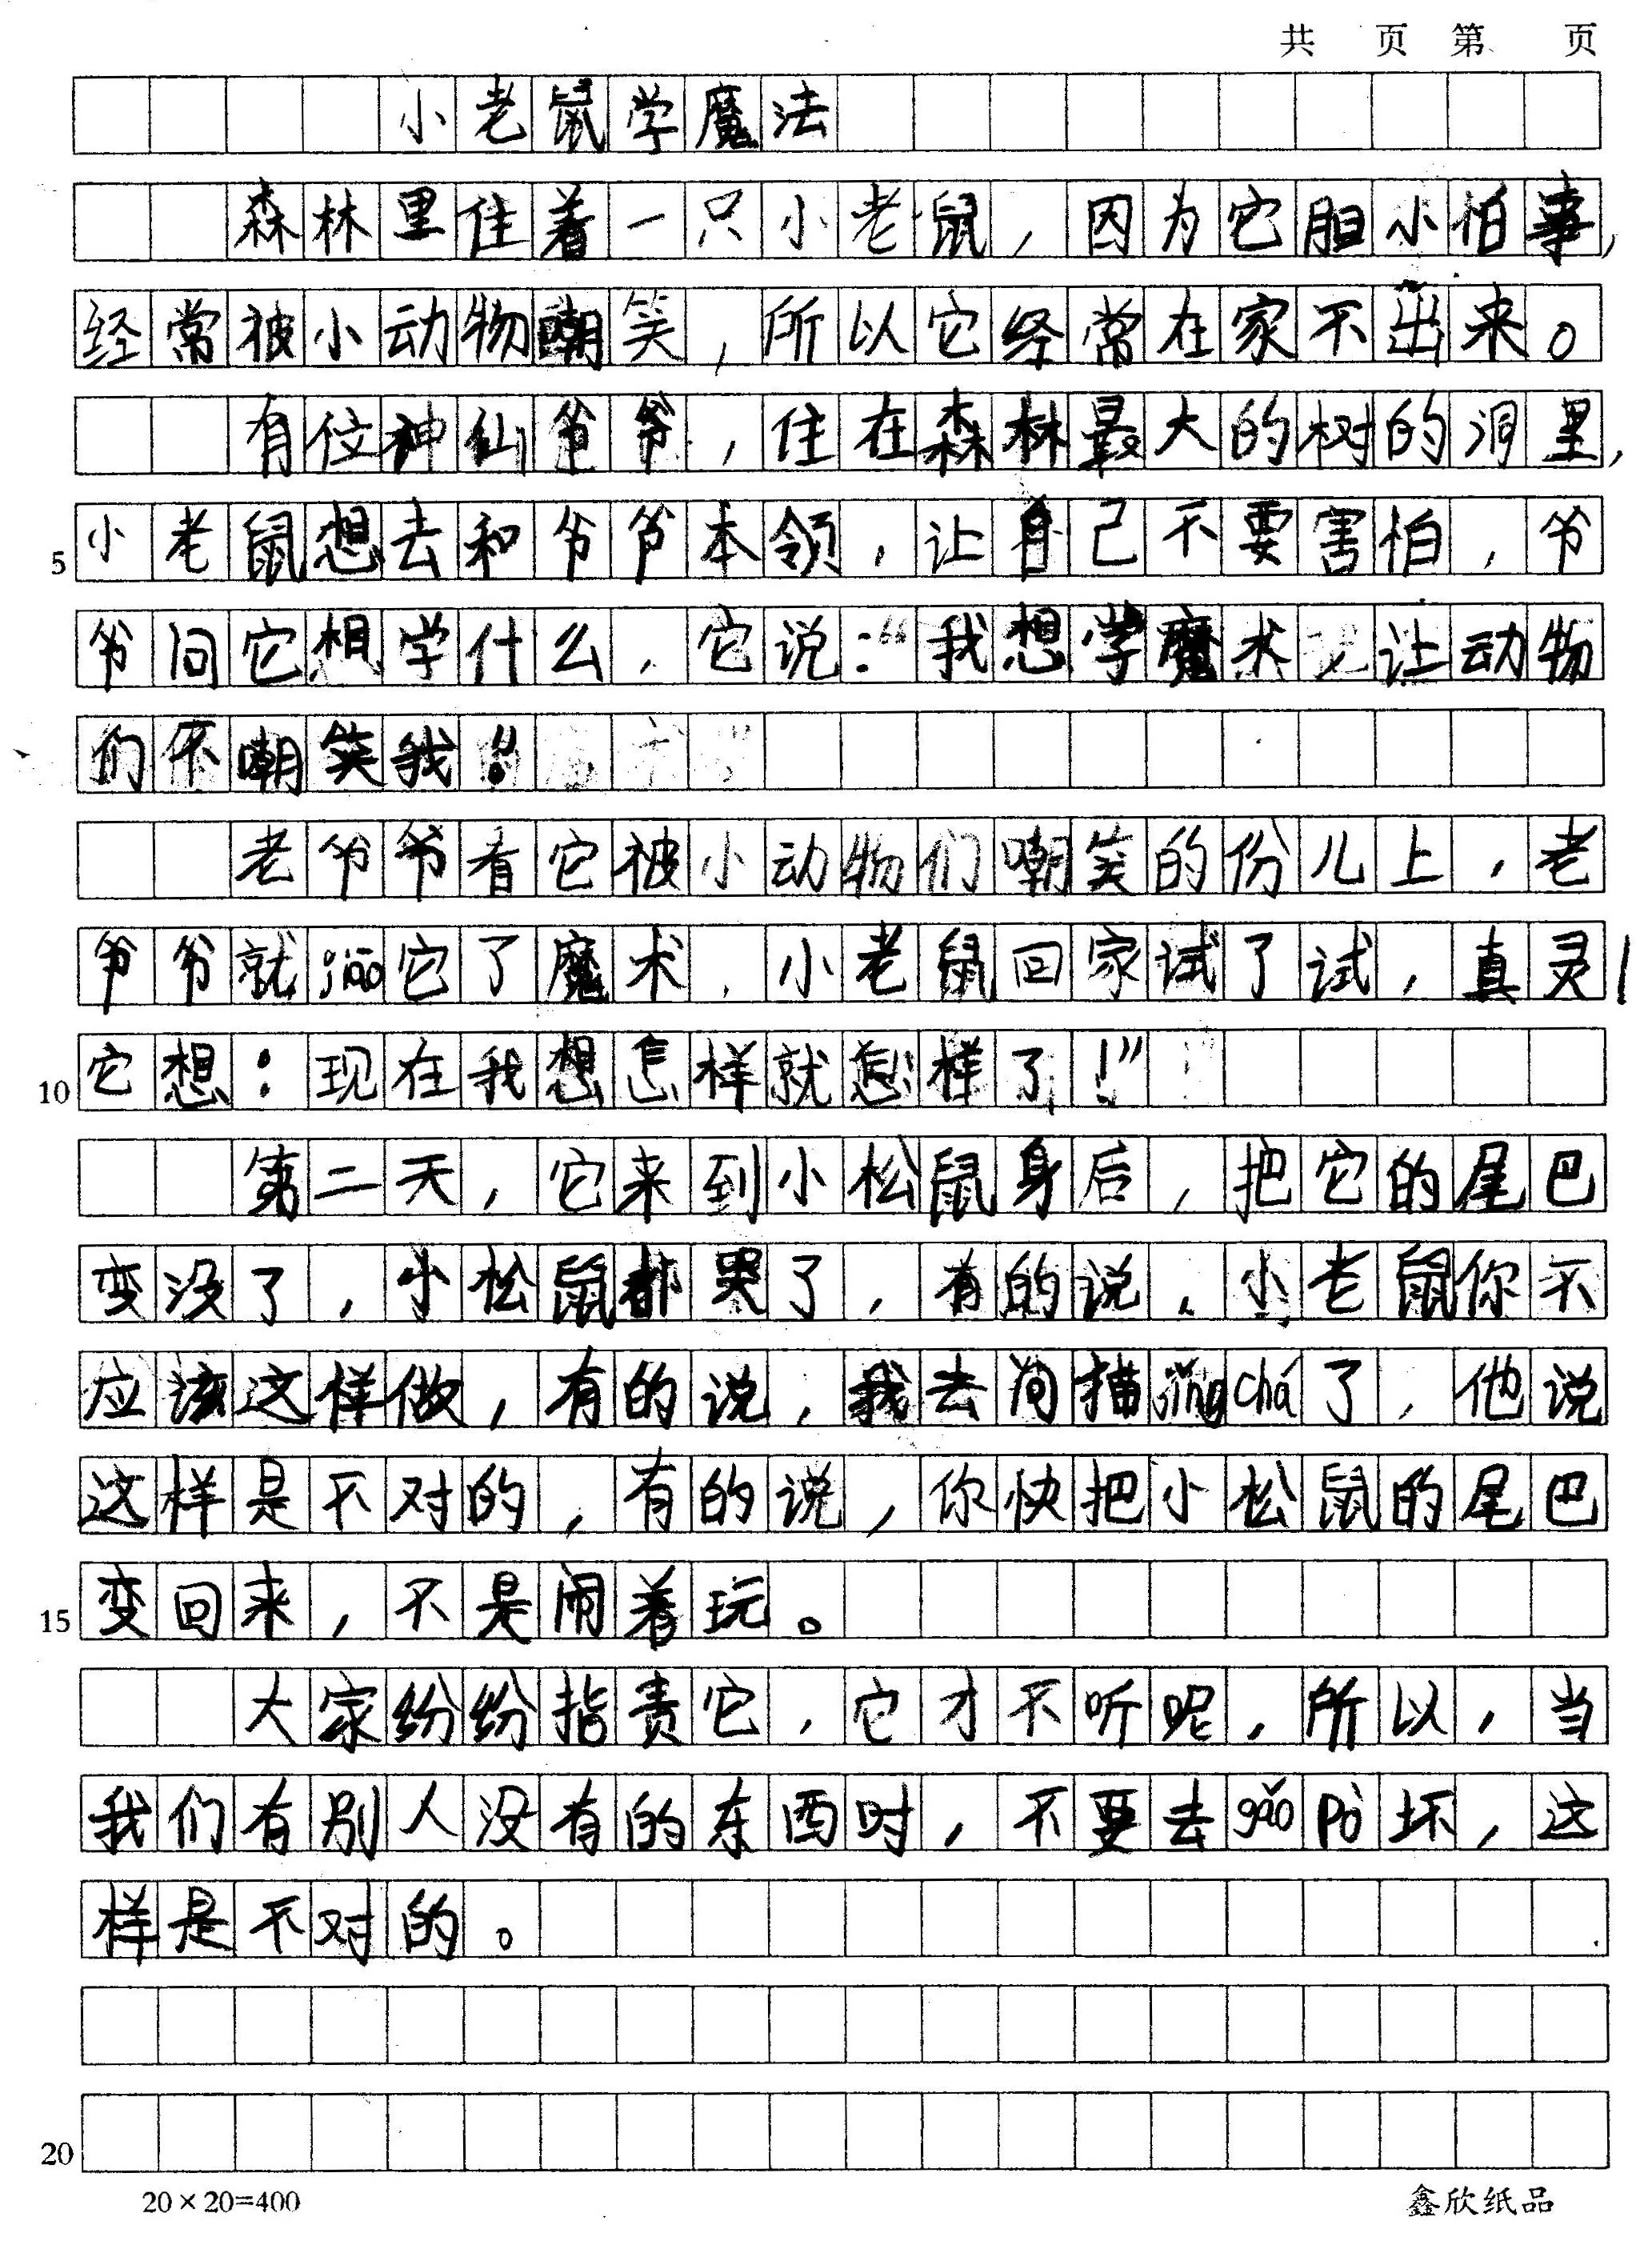 共 页 第 页
小老鼠学魔法
森林里住着一只小老鼠,因为它胆小怕事,
经常被小动物嘲笑,所以它经常在家不出来。
有位神仙爷爷,住在森林最大的树的洞里,
5 小老鼠想去和爷爷本领,让自己不要害怕,爷
爷问它想学什么,它说:“我想学魔术,让动物
们不嘲笑我!”
老爷爷看它被小动物们嘲笑的份儿上,老
爷爷就jiāo它了魔术,小老鼠回家试了试,真灵!
10 它想:现在我想怎样就怎样了!”
第二天,它来到小松鼠身后,把它的尾巴
变没了,小松鼠都哭了,有的说,小老鼠你不
应该这样做,有的说,我去问猫jǐngchá了,他说
这样是不对的,有的说,你快把小松鼠的尾巴
15 变回来,不是闹着玩。
大家纷纷指责它,它才不听呢,所以,当
我们有别人没有的东西时,不要去gǎo pò坏,这
样是不对的。
20
20×20=400 鑫欣纸品